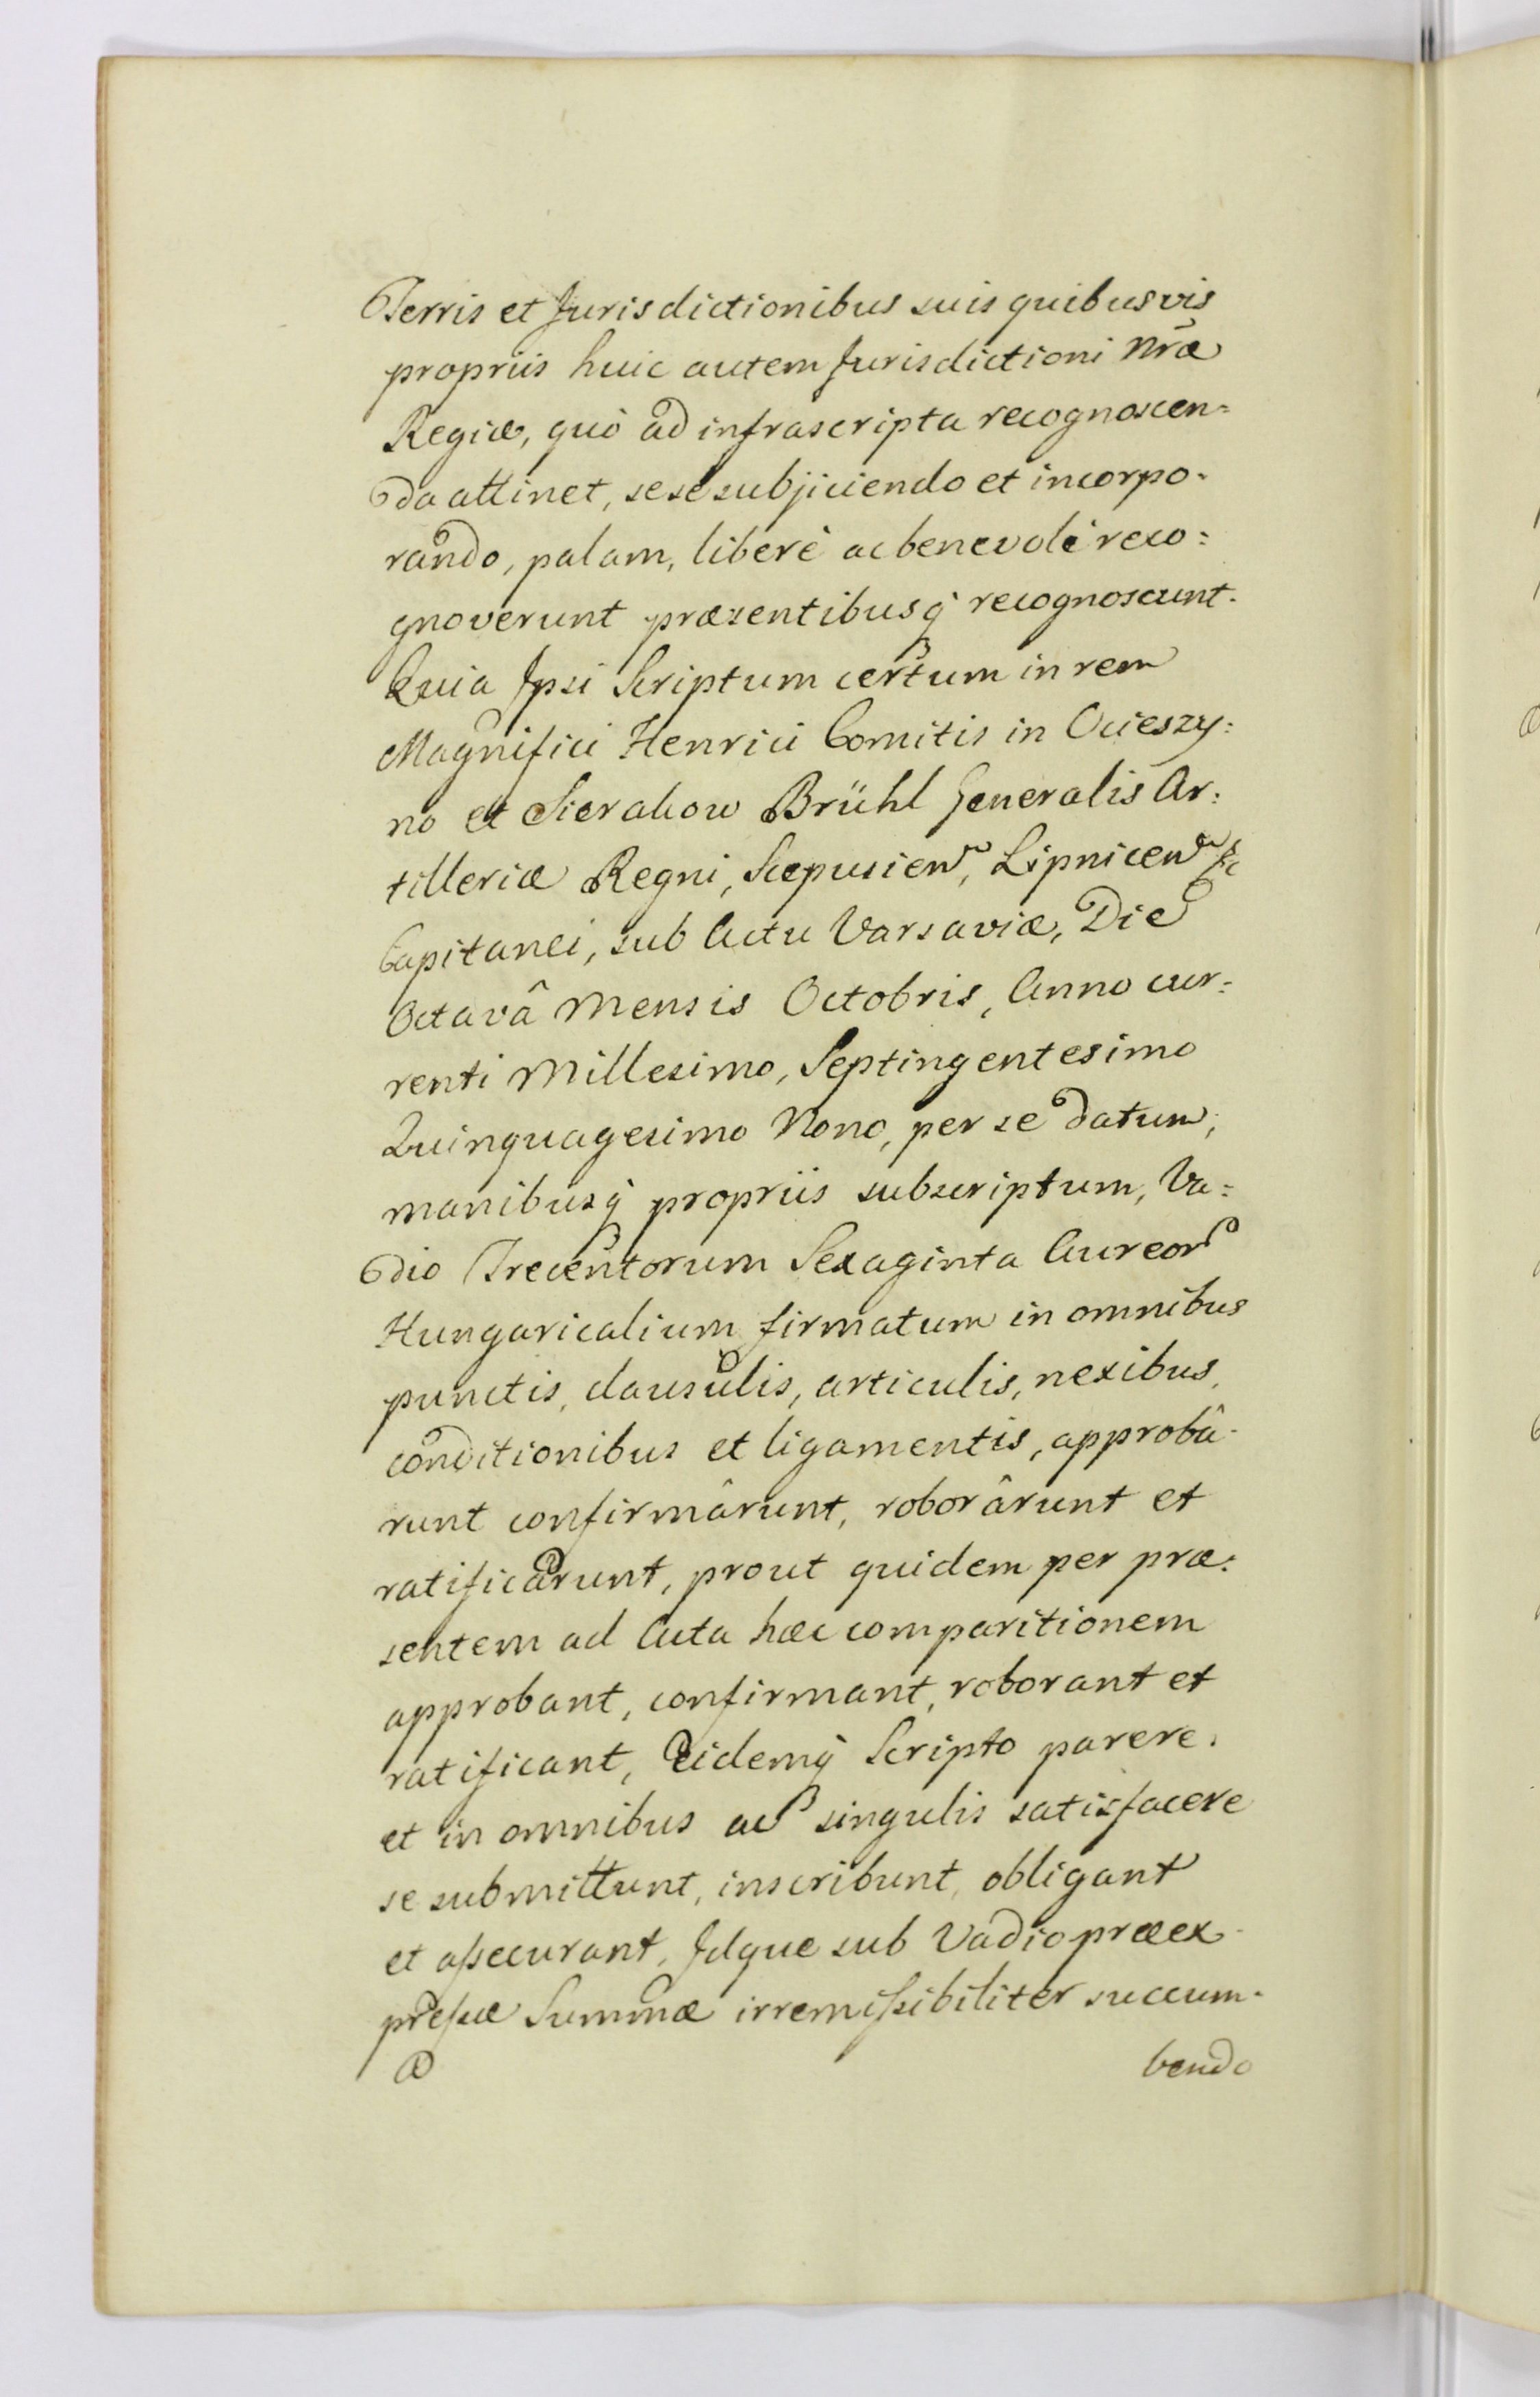 Terris et Jurisdictionibus suis quibusvis
propriis huic autem Jurisdictioni Nræ
Regiæ, quò ad infrascripta recognoscen=
da attinet, sese subjiciendo et incorpo-
rando, palam, liberè ac benevolè reco=
gnoverunt præsentibusq recognoscunt.
Quia Ipsi Scriptum certum in rem
Magnifici Henrici Comitis in Ocieszy=
no et Sierakow Brühl Generalis Ar=
tilleriæ Regni, Scepusien, Lipnicen &c
Capitanei, sub Actu Varsaviæ, Die
Octavâ Mensis Octobris, Anno cur=
renti Millesimo, Septingentesimo
Quinquagesimo Nono, per se datum,
manibusq propriis subscriptum, Va=
dio Trecentorum Sexaginta Aureor
Hungaricalium firmatum in omnibus
punctis, clausulis, articulis, nexibus,
conditionibus et ligamentis, approbâ-
runt confirmârunt, roborârunt et
ratificârunt, prout quidem per præ=
sentem ad Acta hæc comparitionem
approbant, confirmant, roborant et
ratificant, Eidemq Scripto parere,
et in omnibus ac singulis satisfacere
se submittunt, inscribunt, obligant
et assecurant, Idque sub Vadio præex-
pressæ Summæ irremissibiliter succum-
bendo